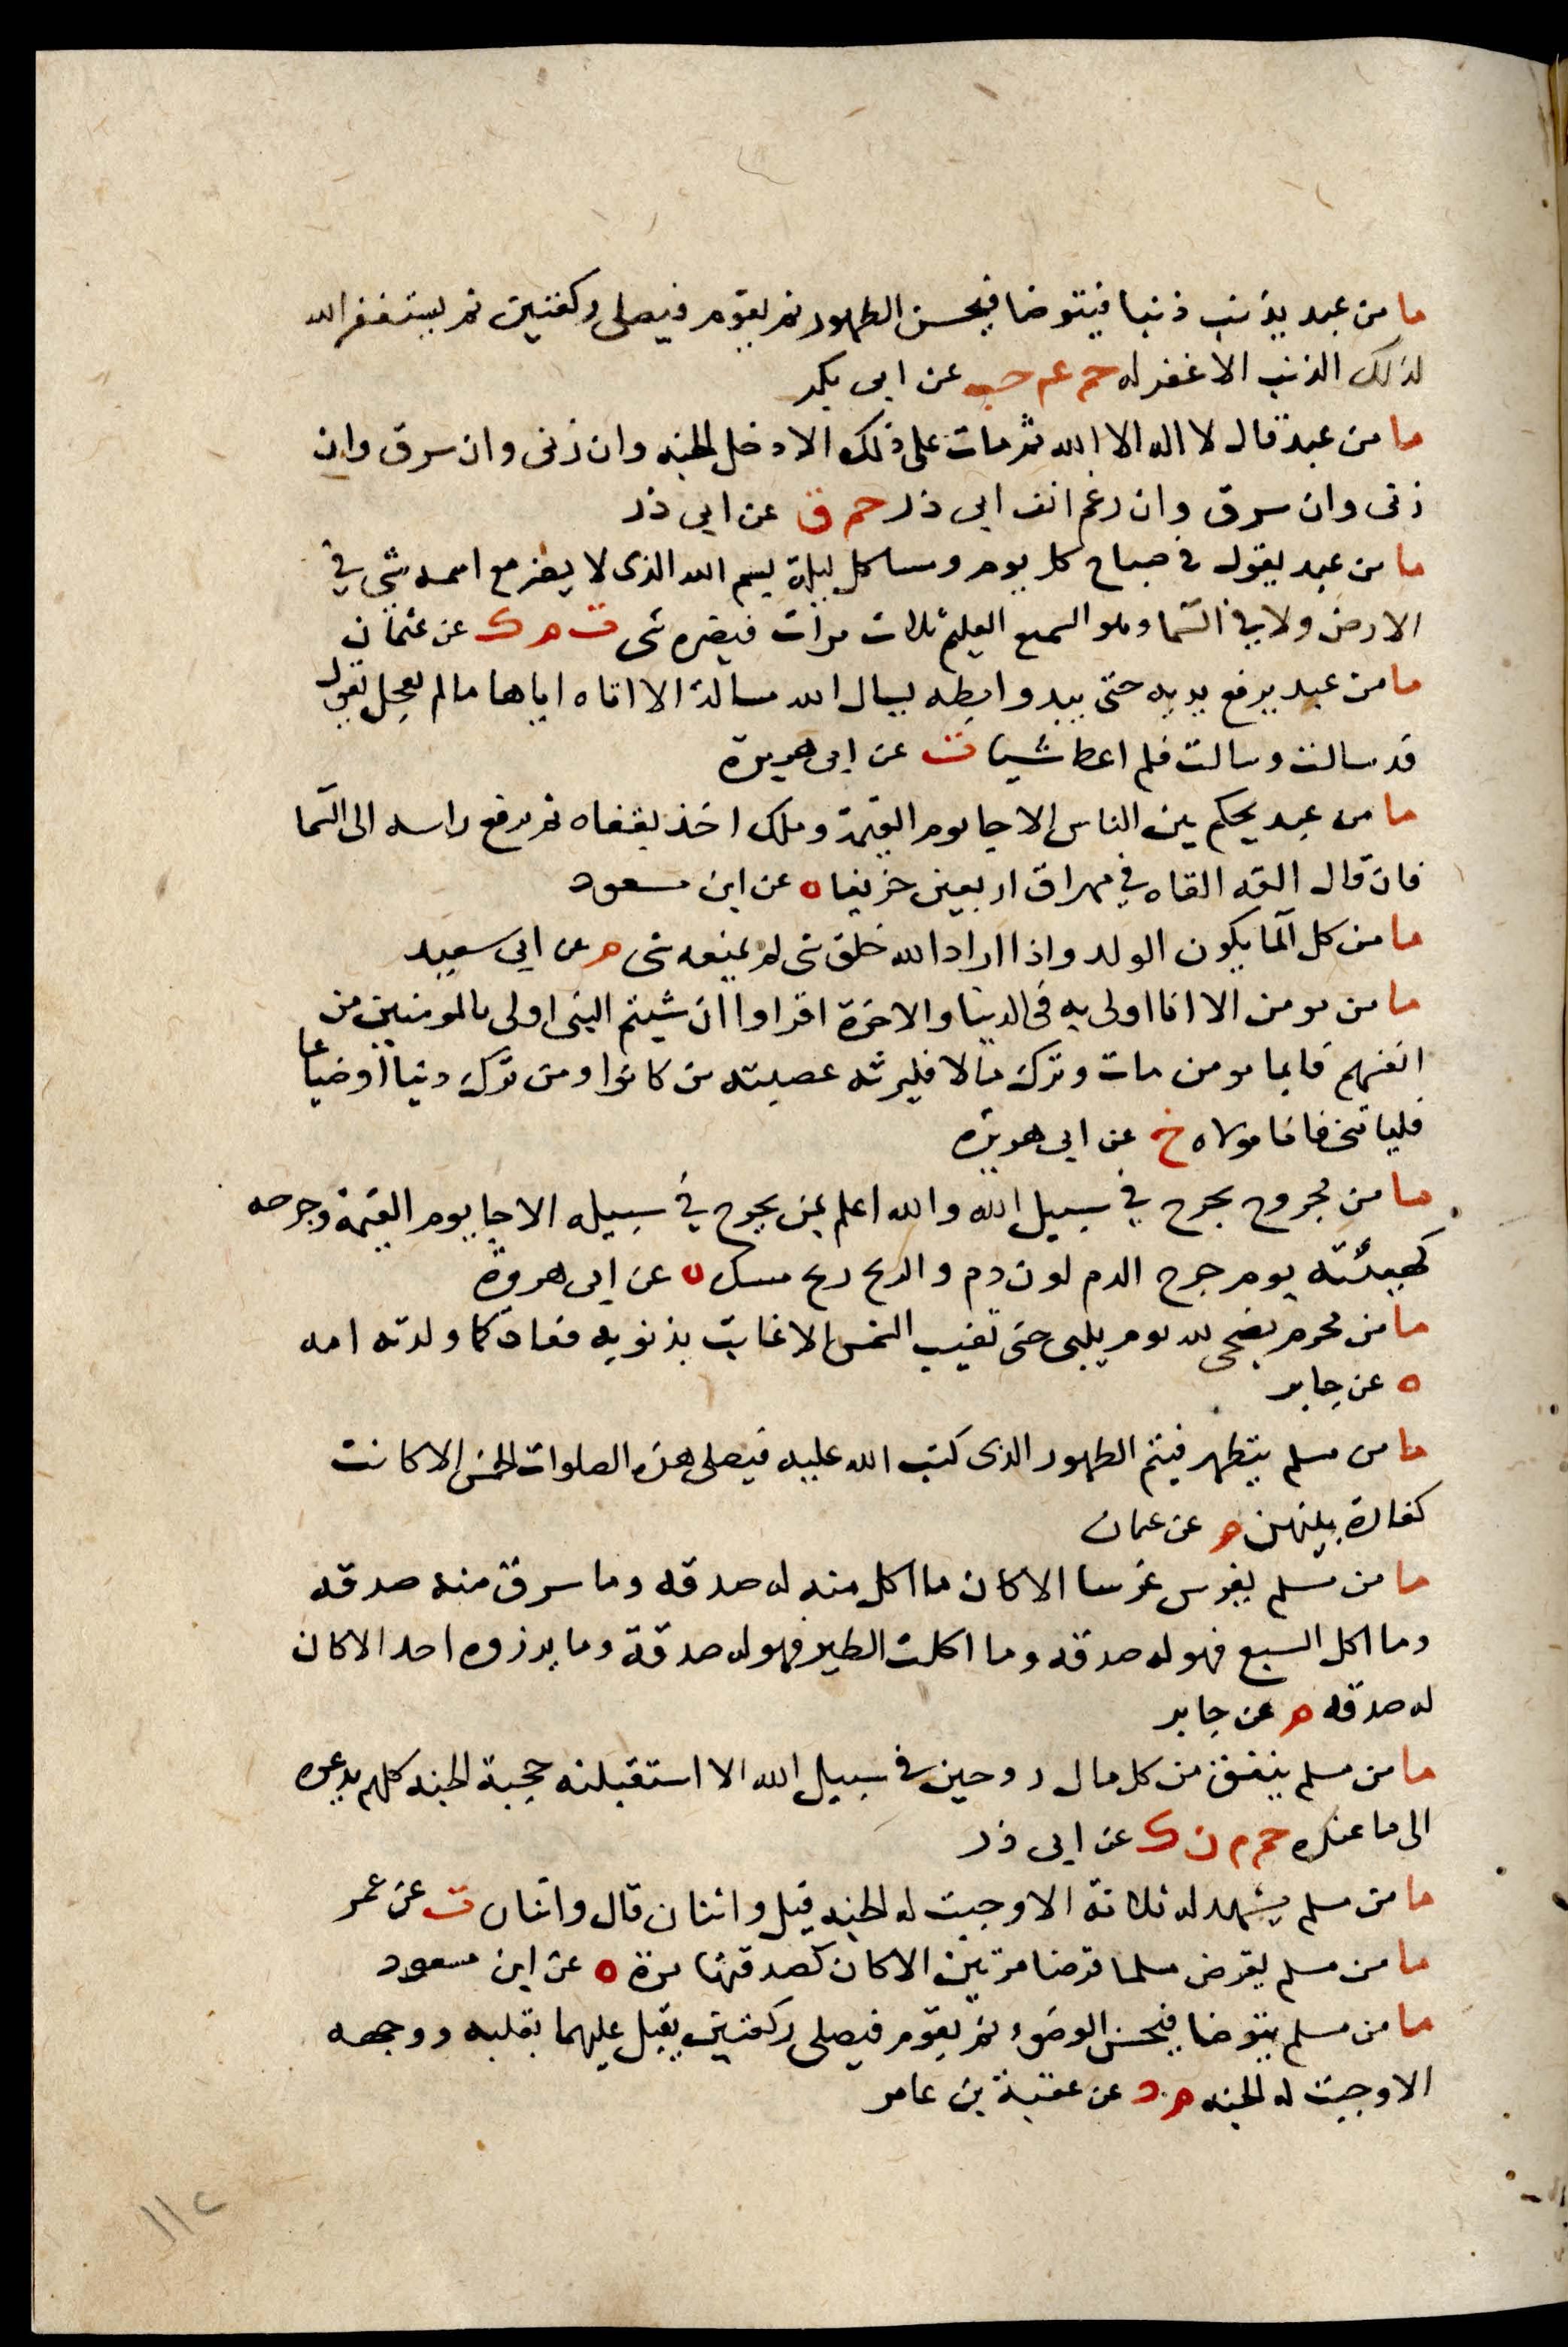 ما من عبد يذنب ذنبا فيتوضا فيحسن الطهور ثم يقوم فيصلى ركعتين ثم يستغفر الله
لذلك الذنب الا غفر له حم عم حب عن ابى بكر
ما من عبد قال لا اله الا الله ثم مات على ذلك الا دخل الجنه وان زنى وان سرق وان
زنى وان سرق وان رغم انف ابى ذر حم ق عن ابى ذر
ما من عبد يقول فى صباح كل يوم ومسا كل ليلة بسم الله الذى لا يضر مع اسمه شى في
الارض ولا في السما وهو السميع العليم ثلاث مرات فيضره شى ت ه ك عن عثمان
ما من عبد يرفع يديه حتى يبدو ابطه يسال الله مسالة الا اتاه اياها مالم يعجل يقول
قد سالت وسالت فلم اعط شيا ت عن ابى هريرة
ما من عبد يحكم بين الناس الا جا يوم القيمة وملك اخذ بقفاه ثم يرفع راسه الى السما
فان قال القه القاه في مهراق اربعين خريفا ه عن ابن مسعود
ما من كل الما يكون الولد واذا اراد الله خلق شى لم يمنعه شى م عن ابى سعيد
ما من مومن الا انا اولى به فى الدنيا والاخرة اقراوا ان شيتم النبى اولى بالمومنين من
انفسهم فايما مومن مات وترك مالا فليرثه عصبته من كانوا ومن ترك دينا او ضياعا
فلياتنى فانا مولاه خ عن ابى هريرة
ما من مجروح يجرح في سبيل الله والله اعلم بمن يجرح في سبيله الا جا يوم القيمة وجرحه
كهيئته يوم جرح الدم لون دم والريح ريح مسك ه عن ابى هريرة
ما من محرم يضحى لله يوم يلبى حتى تغيب الشمس الا غابت بذنوبه فعاد كما ولدته امه
ه عن جابر
ما من مسلم يتطهر فيتم الطهور الذى كتب الله عليه فيصلى هذه الصلوات الخمس الا كانت
كفارة بينهن م عن عثمان
ما من مسلم يغرس غرسا الا كان ما اكل منه له صدقه وما سرق منه صدقه
وما اكل السبع فهو له صدقه وما اكلت الطير فهو له صدقة وما يرزوه احد الا كان
له صدقه م عن جابر
ما من مسلم ينفق من كل مال زوجين في سبيل الله الا استقبلته حجبة الجنه كلهم يدعوه
الى ما عنده حم ن ك عن ابى ذر
ما من مسلم يشهد له ثلاثة الا وجبت له الجنه قيل واثنان قال واثنان ت عن عمر
ما من مسلم يقرض مسلما قرضا مرتين الا كان كصدقتها مرة ه عن ابن مسعود
ما من مسلم يتوضا فيحسن الوضوء ثم يقوم فيصلى ركعتين يقبل عليهما بقلبه ووجهه
الا وجبت له الجنه م د عن عقبة بن عامر
١١٢